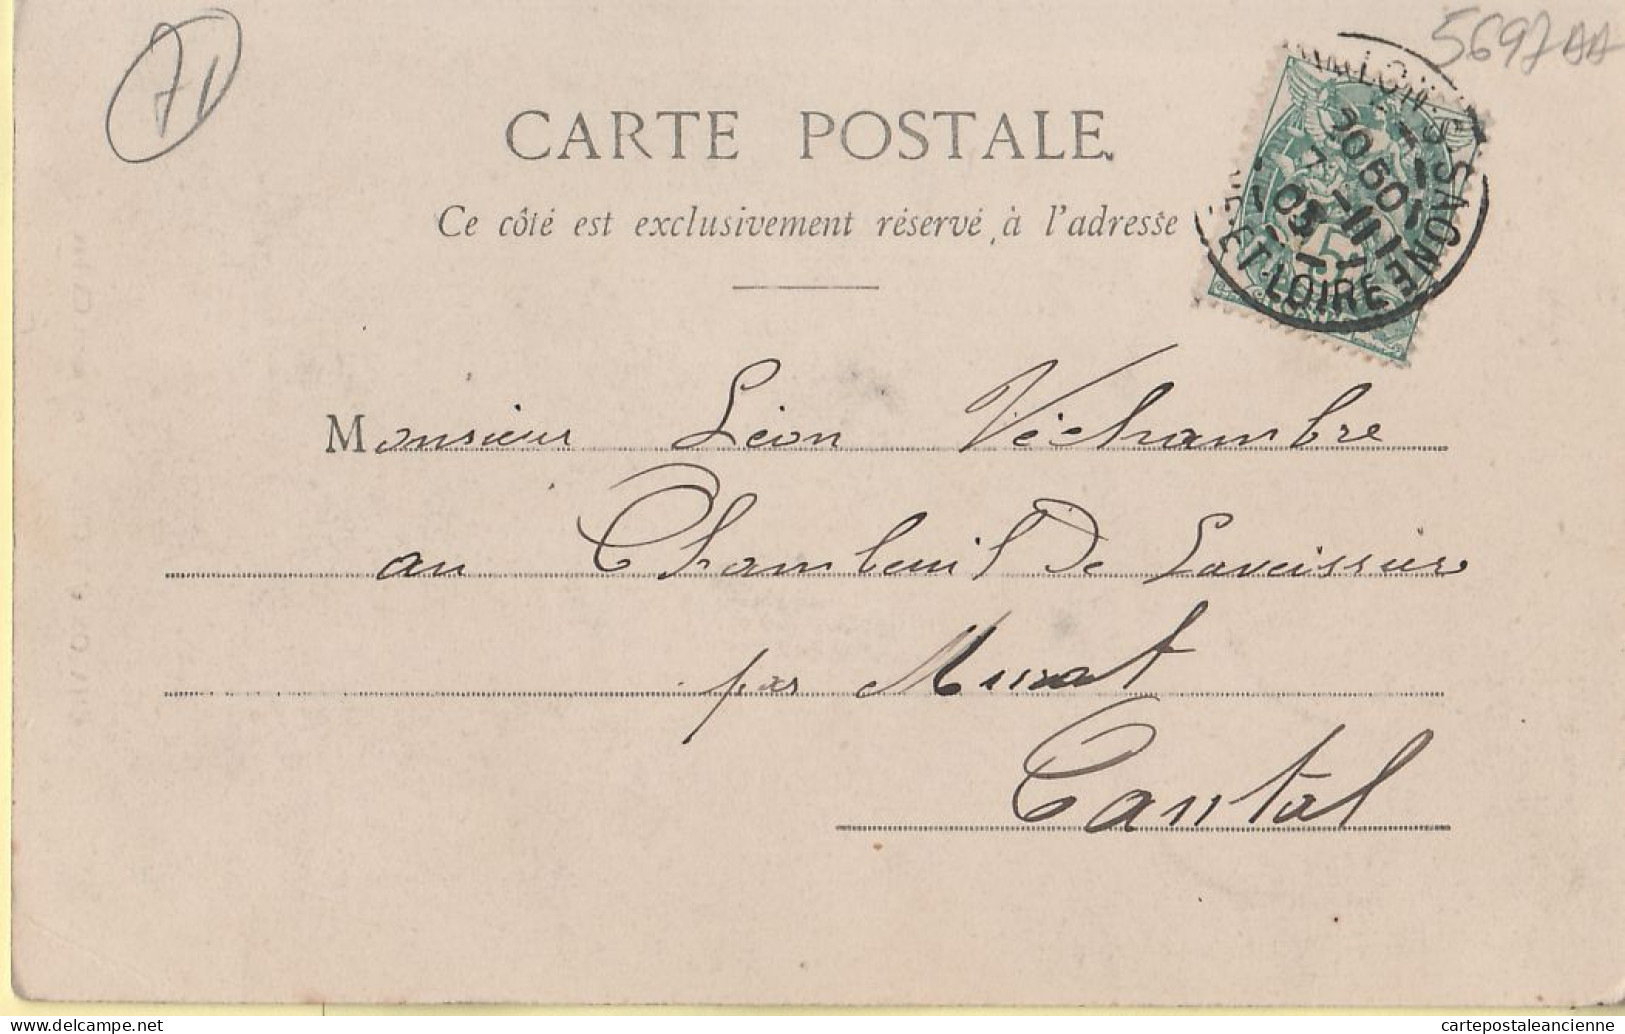 71
5697AA
CARTE POSTALE
Ce côté est exclusivement réservé à l'adresse
CHALON-S-SAONE
20 50
7 - 11
03
ET-LOIRE
5
Monsieur Léon Véchambre
au Chambeuil De Laveissière
par Murat
Cantal
www.cartepostaleancienne.com
cartepostaleancienne